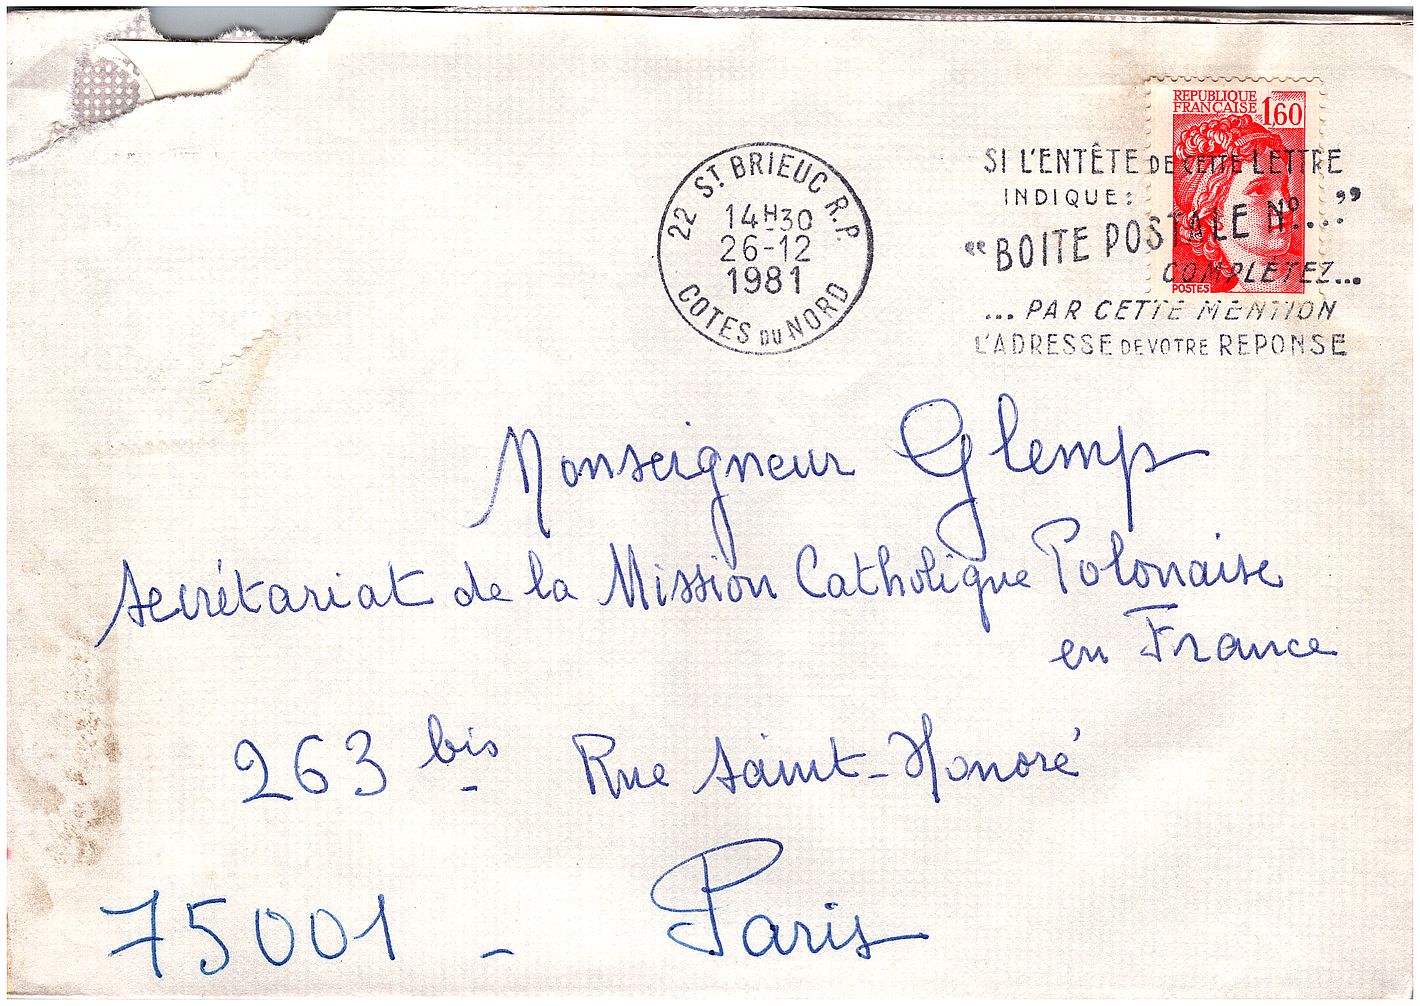 REPUBLIQUE
FRANÇAISE 1,60
POSTES
22 ST BRIEUC R.P.
14H30
26-12
1981
COTES DU NORD
SI L'ENTÊTE DE CETTE LETTRE
INDIQUE:
"BOITE POSTALE No...."
COMPLETEZ...
... PAR CETTE MENTION
L'ADRESSE DE VOTRE REPONSE
Monseigneur Glemp
secrétariat de la Mission Catholique Polonaise
en France
263 bis Rue saint-Honoré
75001 - Paris